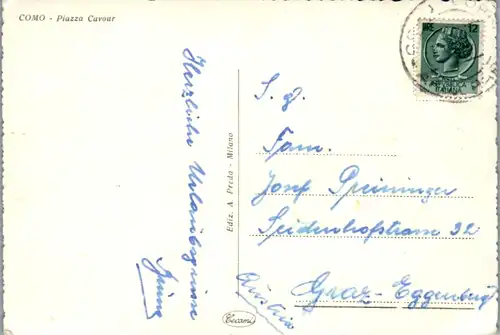 COMO - Piazza Cavour
Herzliche Urlaubsgrüsse
Ediz. A. Preda - Milano
S. g.
Fam.
Josef Spreininger
Seidenhofstrasse 32
Graz-Eggenberg
Austria
12